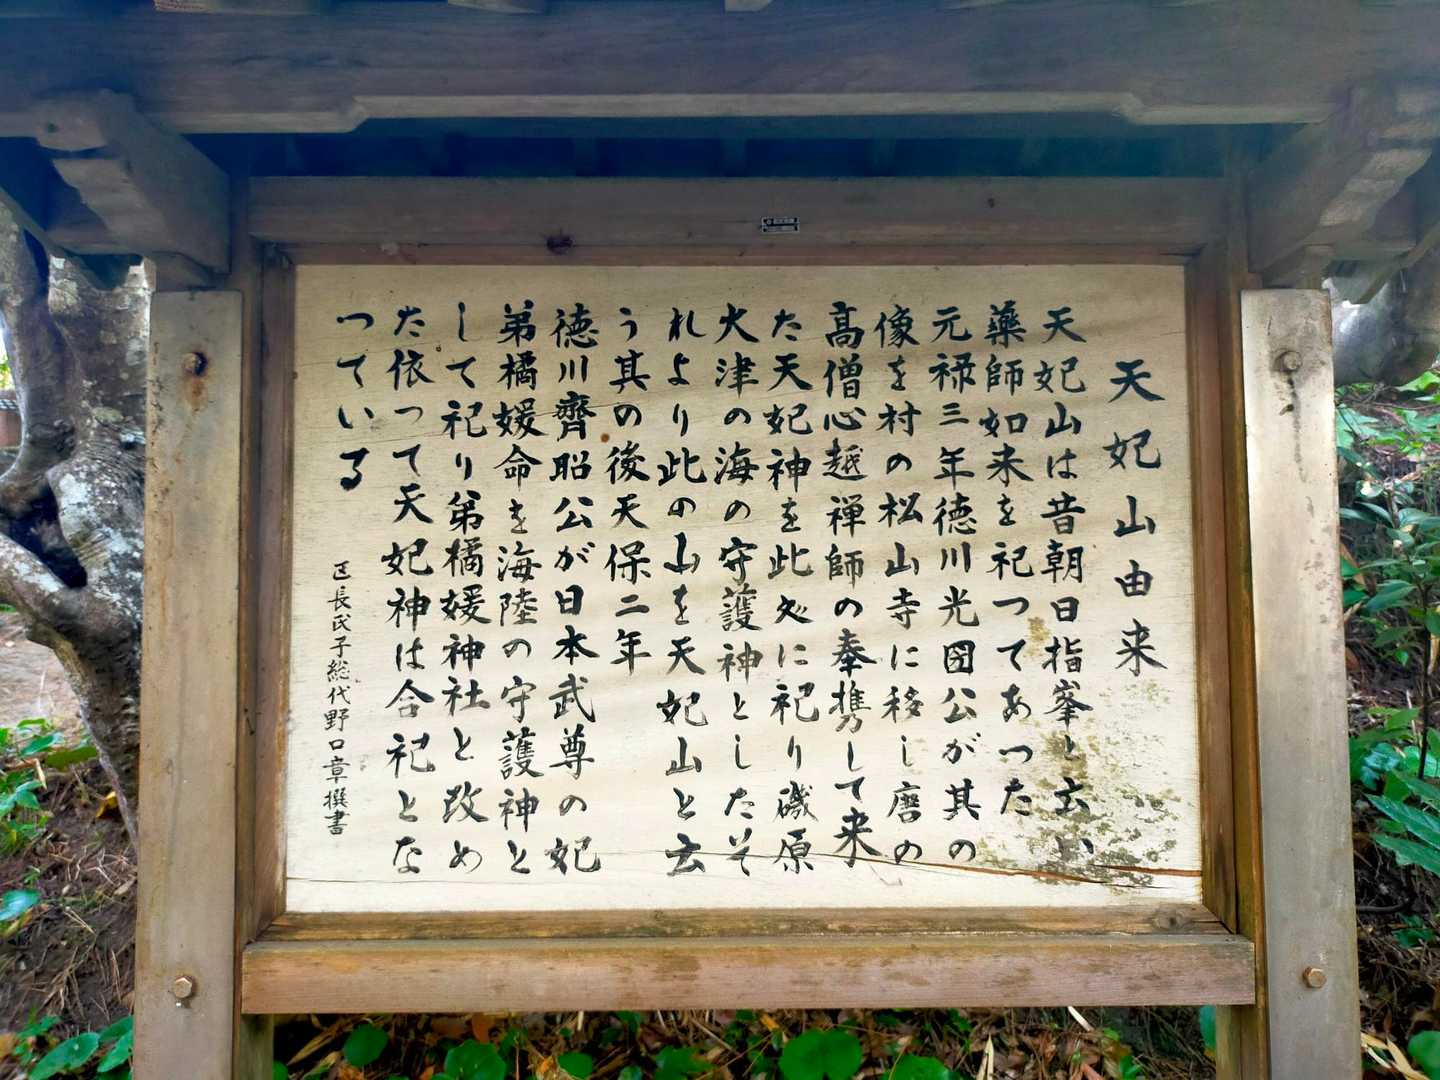 天妃山由来
天妃山は昔朝日指峯と云い
薬師如来を祀つてあつた
元禄三年徳川光圀公が其の
像を村の松山寺に移し唐の
高僧心越禅師の奉携して来
た天妃神を此処に祀り磯原
大津の海の守護神としたそ
れより此の山を天妃山と云
う其の後天保二年
徳川齊昭公が日本武尊の妃
弟橘媛命を海陸の守護神と
して祀り弟橘媛神社と改め
た依って天妃神は合祀とな
つている
区長氏子総代野口章撰書